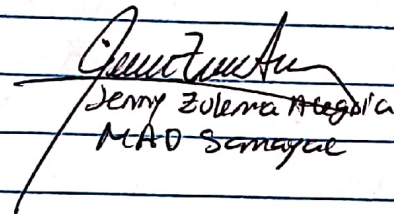 Jenny Zulema Alegria
MAD Samayac